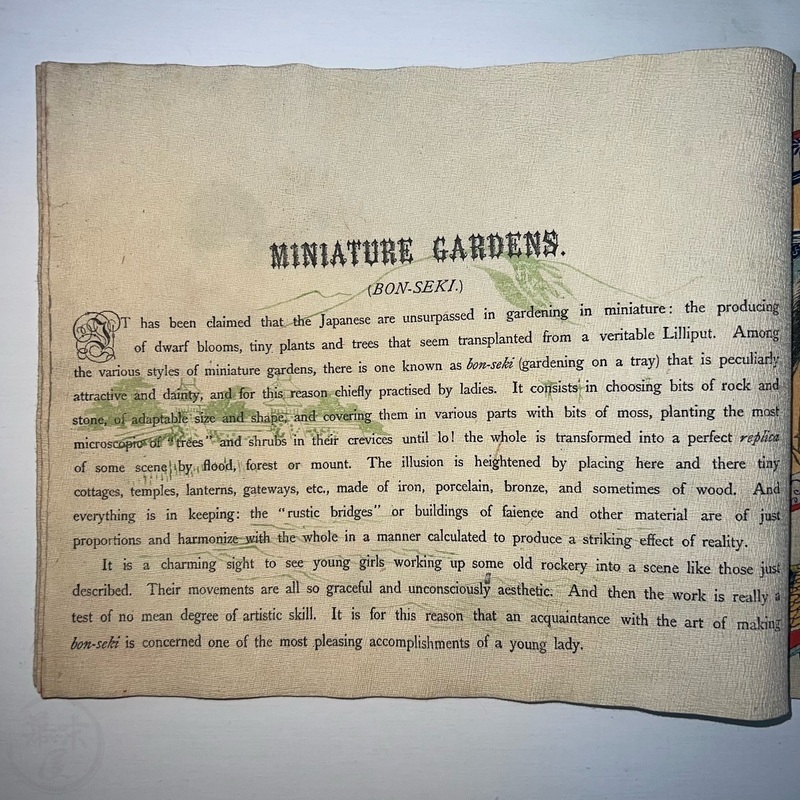 MINIATURE GARDENS.
(BON-SEKI.)
IT has been claimed that the Japanese are unsurpassed in gardening in miniature: the producing
of dwarf blooms, tiny plants and trees that seem transplanted from a veritable Lilliput. Among
the various styles of miniature gardens, there is one known as bon-seki (gardening on a tray) that is peculiarly
attractive and dainty, and for this reason chiefly practised by ladies. It consists in choosing bits of rock and
stone, of adaptable size and shape, and covering them in various parts with bits of moss, planting the most
microscopic of "trees" and shrubs in their crevices until lo! the whole is transformed into a perfect replica
of some scene by flood, forest or mount. The illusion is heightened by placing here and there tiny
cottages, temples, lanterns, gateways, etc., made of iron, porcelain, bronze, and sometimes of wood. And
everything is in keeping: the "rustic bridges" or buildings of faience and other material are of just
proportions and harmonize with the whole in a manner calculated to produce a striking effect of reality.
It is a charming sight to see young girls working up some old rockery into a scene like those just
described. Their movements are all so graceful and unconsciously aesthetic. And then the work is really a
test of no mean degree of artistic skill. It is for this reason that an acquaintance with the art of making
bon-seki is concerned one of the most pleasing accomplishments of a young lady.